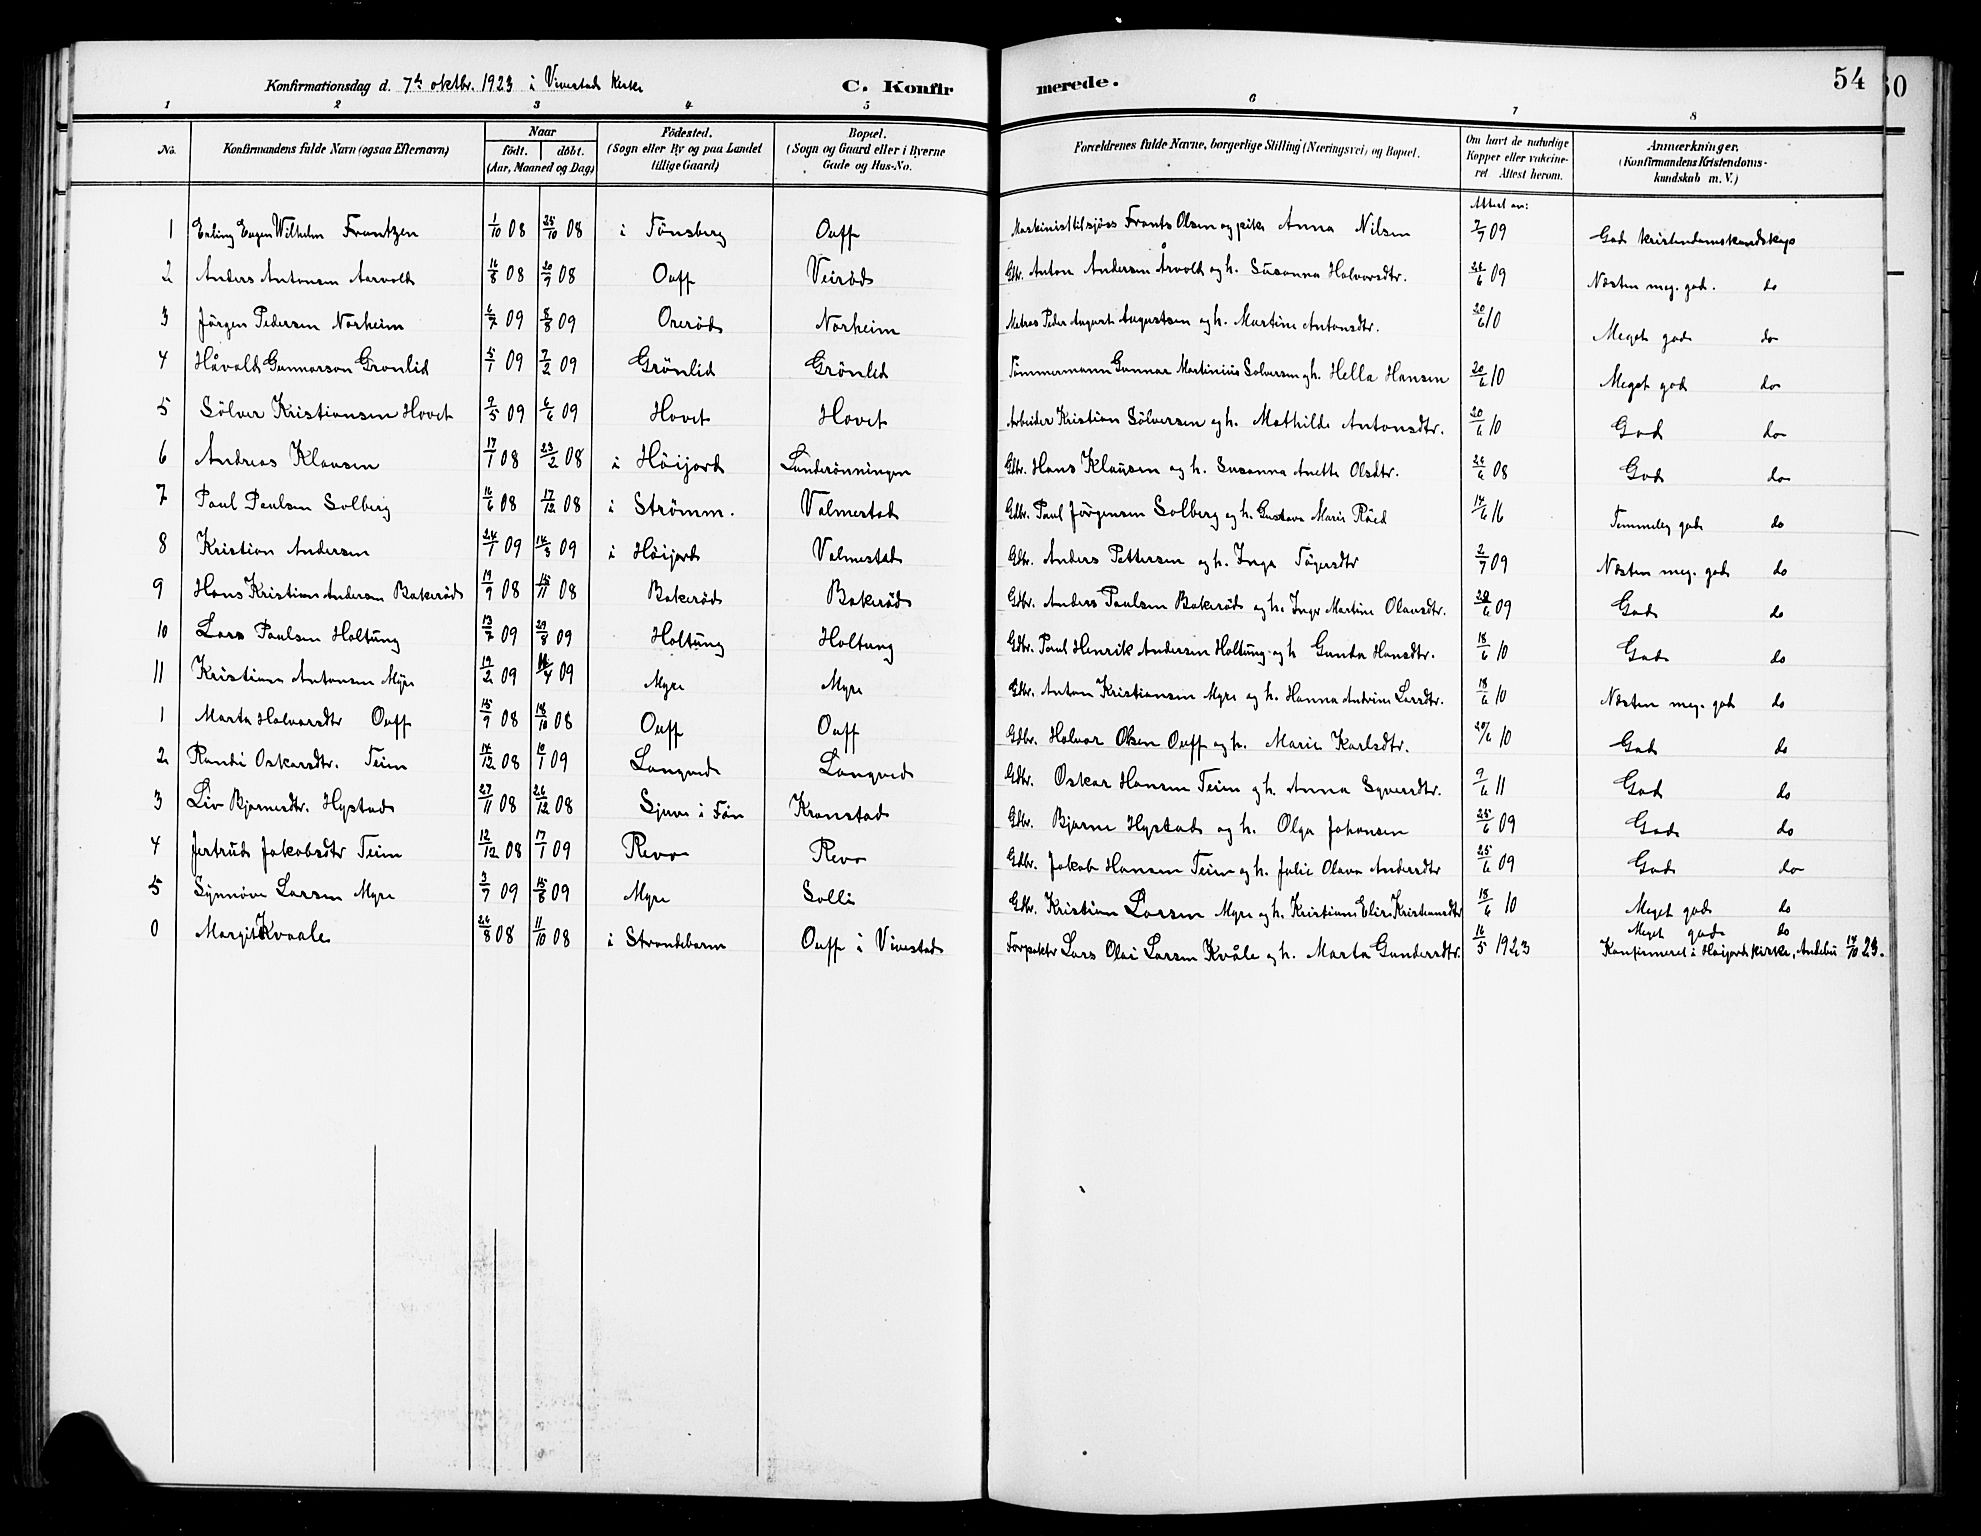 Konfirmationsdag d. 7de oktbr. 1923 i Vivestad Kirke
C. Konfir
merede.
54
30
1 2 3 4 5 6 7 8
No.
Konfirmandens fulde Navn (ogsaa Efternavn)
Naar
födt. döbt.
(Aar, Maaned og Dag)
Födested.
(Sogn eller By og paa Landet
tillige Gaard)
Bopæl.
(Sogn og Gaard eller i Byerne
Gade og Hus-No.
Forældrenes fulde Navne, borgerlige Stilling (Næringsvei) og Bopæl.
Om havt de naturlige
Kopper eller vakcine-
ret Attest herom.
Anmærkninger.
(Konfirmandens Kristendoms-
kundskab m. V.)
Attest av:
1 Erling Eugen Wilhelm Frantzen 1/10 08 25/10 08 i Tönsberg Ouff Maskinist tilsjøss Frants Olsen og pike Anna Nilsen 7/7 09 God kristendomskundskap
2 Anders Antonsen Aarvold 16/8 08 20/9 08 Ouff Veiröd Gbr. Anton Andersen Årvold og h. Susanna Halvorsdtr. 26/6 09 Næsten meg. god. do
3 Jörgen Pedersen Norheim 6/7 09 8/8 09 Oreröd Norheim Matros Peder August Augustsen og h. Martine Antonsdtr. 20/6 10 Meget god do
4 Håvald Gunnarson Gronlid 5/1 09 7/2 09 Grönlid Grönlid Tömmermann Gunnar Martinius Solversen gh. Hella Hansen 20/6 10 Meget god do
5 Sölver Kristiansen Hovet 9/5 09 6/6 09 Hovet Hovet Arbeider Kristian Sölversen og h. Mathilde Antonsdtr. 20/6 10 God do
6 Andreas Klausen 17/1 08 23/2 08 i Höijord Lunderönningen Gdbr. Hans Klausen og h. Susanna Anette Olsdtr. 26/6 08 God do
7 Paul Paulsen Solberg 16/6 08 17/12 08 i Strömm. Valmestad Gdbr. Paul Jörgensen Solberg og h. Gustava Marie Röed 14/6 16 Temmelig god do
8 Kristian Andersen 24/1 09 14/3 09 i Höijord Valmestad Gdbr. Anders Pettersen og h. Inga Tögersdtr 2/7 09 Næsten meg. god do
9 Hans Kristian Andersen Bakeröd 19/9 08 15/11 08 Bakeröd Bakeröd Gdbr. Anders Paulsen Bakeröd og h. Inger Martine Olausdtr. 28/6 09 God do
10 Lars Paulsen Holtung 13/7 09 29/8 09 Holtung Holtung Gdbr. Paul Henrik Andersen Holtung og h Gunda Hansdtr. 18/6 10 God do
11 Kristian Antonsen Myre 19/2 09 /4 09 Myre Myre Gdbr. Anton Kristiansen Myre og h. Hanna Andrine Larsdtr. 18/6 10 Næsten meg. god do
1 Marta Halvorsdtr Ouff 15/9 08 18/10 08 Ouff Ouff Gdbr. Halvor Olsen Ouff og h. Marie Karlsdtr. 20/6 10 God do
2 Randi Oskarsdtr. Teien 14/12 08 10/1 09 Langved Langved Gdbr. Oskar Hansen Teien og h. Anna Syversdtr. 9/6 11 God do
3 Liv Bjarnesdtr. Hystad 27/11 08 26/12 08 Sjuve i Tön Kronstad Gdbr. Bjarne Hystad og h. Olga Johansen 25/6 09 God do
4 Jertrud Jakobsdtr Teien 12/12 08 17/1 09 Revo Revo Gdbr. Jakob Hansen Teien og h. Julie Olava Andersdtr 25/6 09 God do
5 Synnöve Larsen Myre 3/7 09 15/8 09 Myre Solli Gdbr. Kristian Larsen Myre og h. Kristiane Elise Kristiansdtr 18/6 10 Meget god do
0 Margit Kvaale 26/8 08 11/10 08 i Strandebarm Ouff i Vivestad Forpakter Lars Olai Larsen Kvåle og h. Marta Gundersdtr. 16/5 1923 Meget god do
Konfirmeret i Höijord kirke, Andebu 14/10 23.